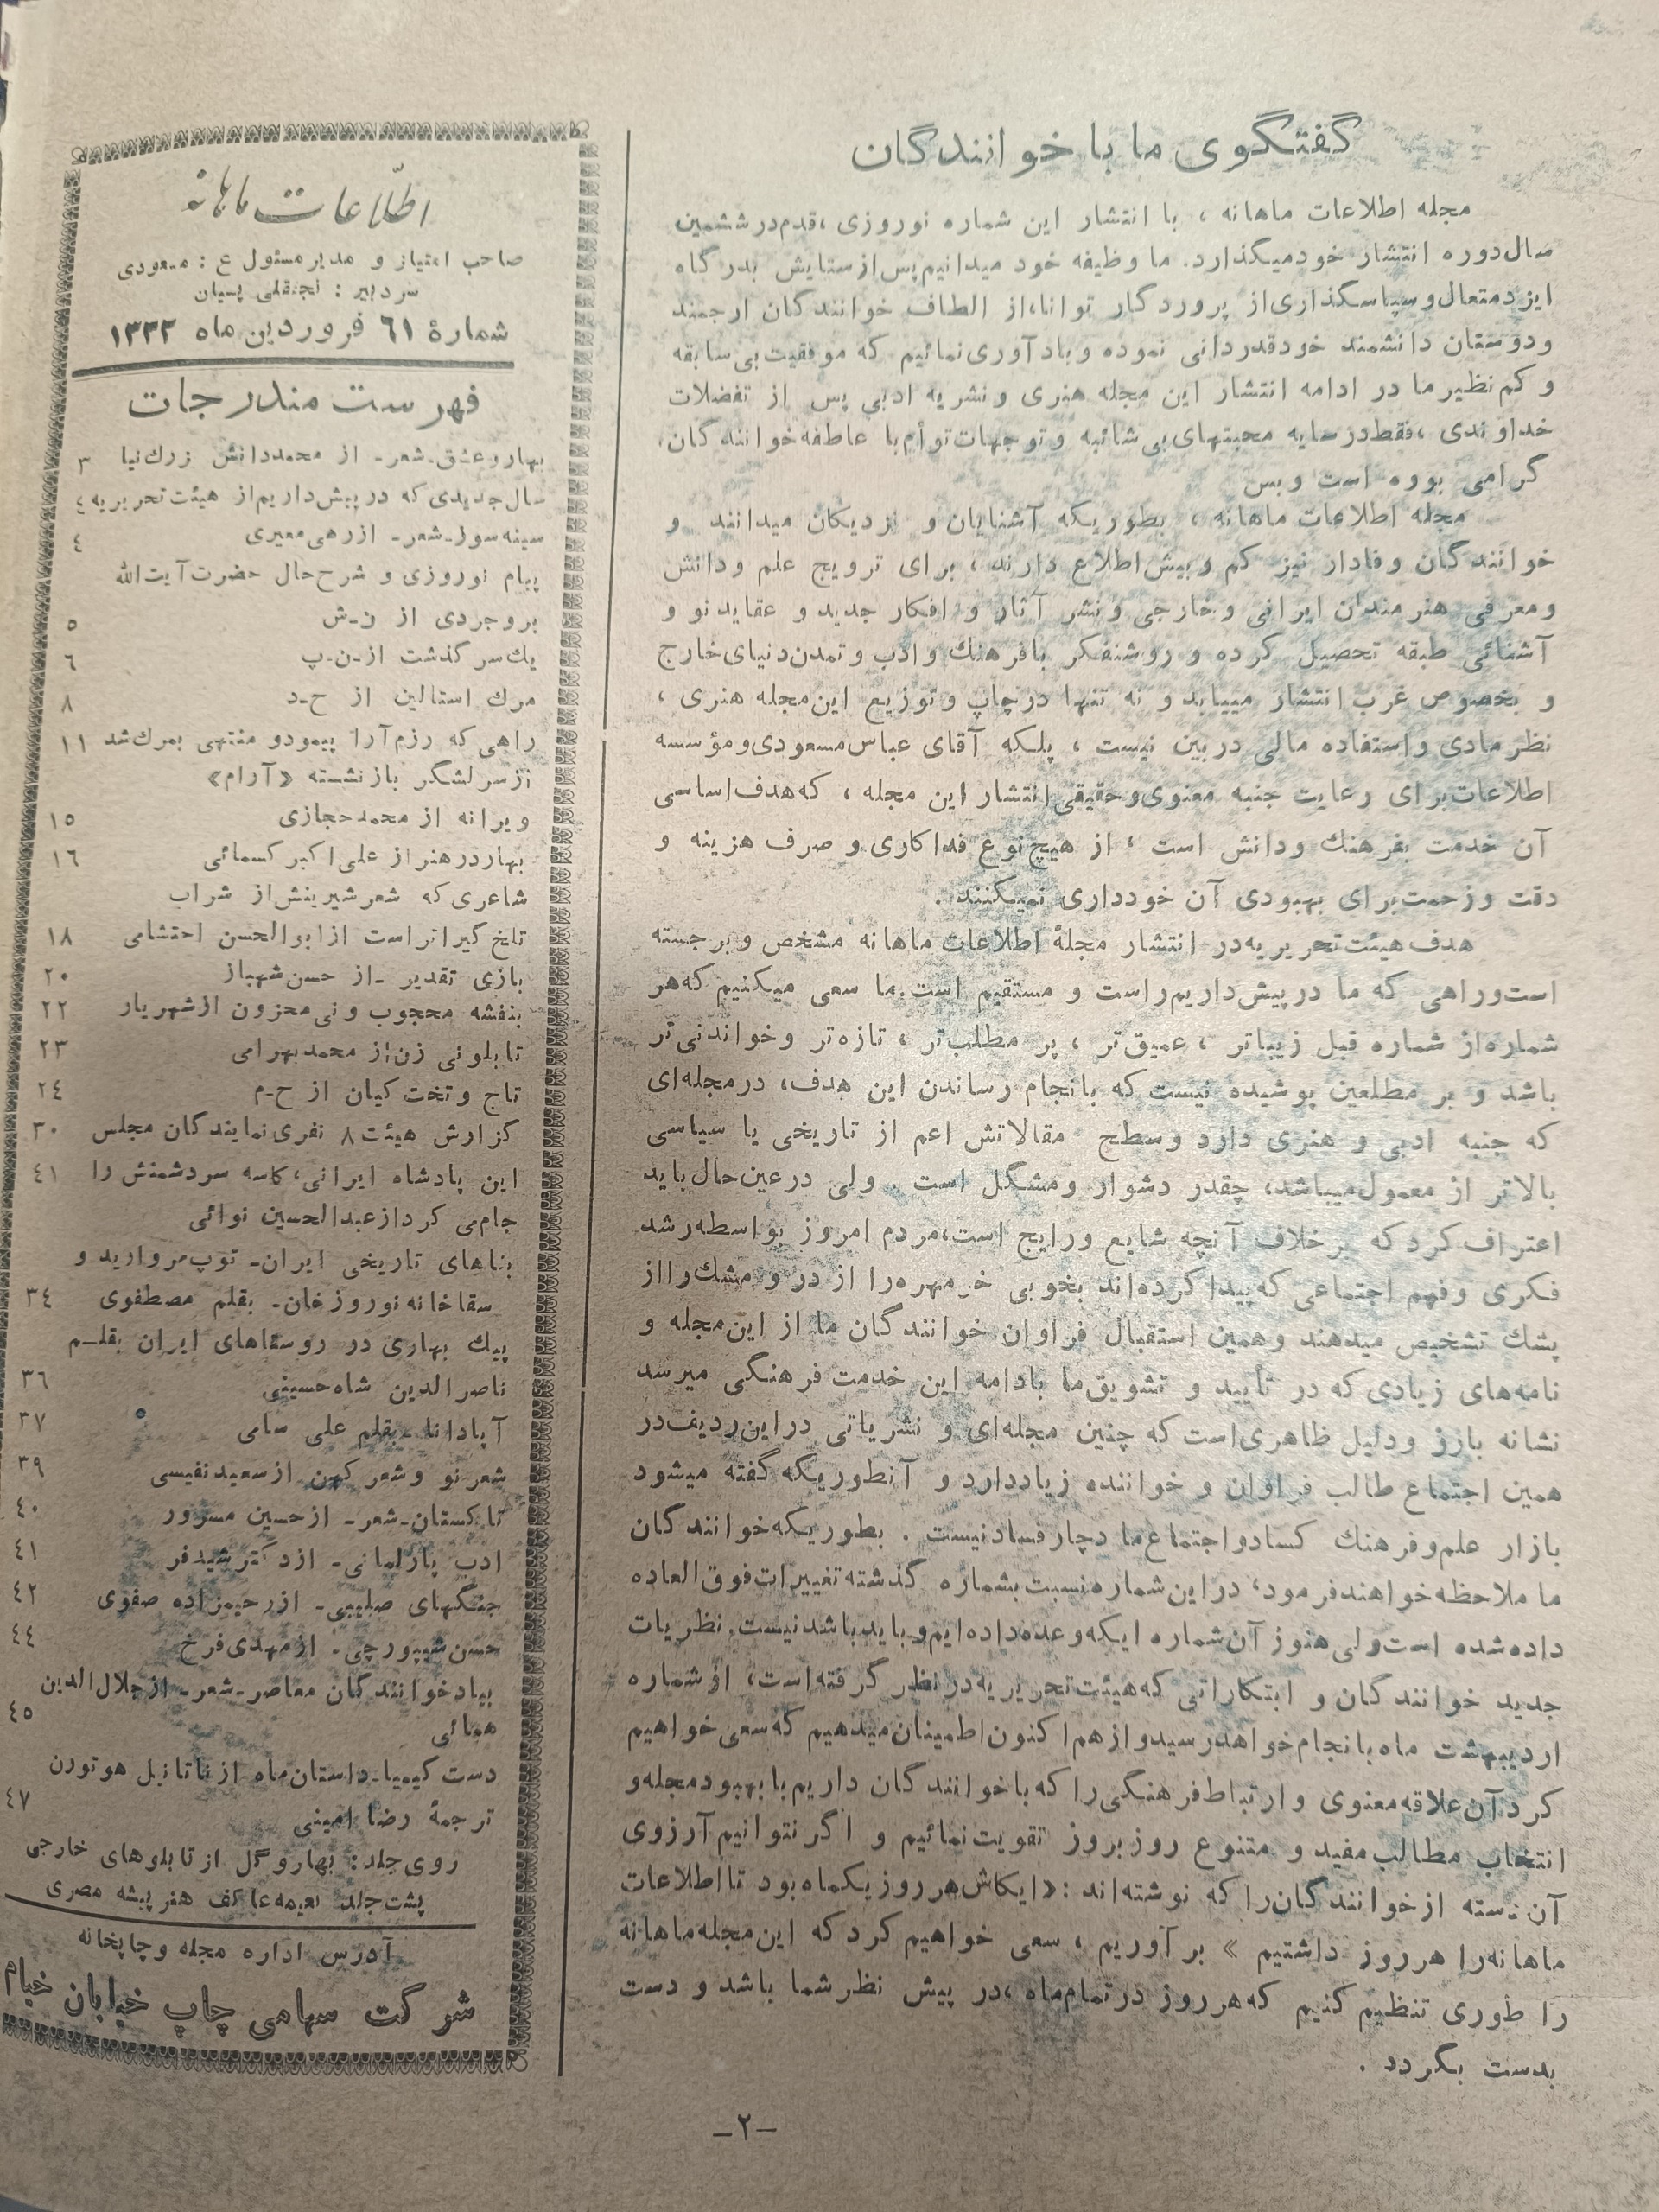 گفتگوی ما با خوانندگان
مجله اطلاعات ماهانه ، با انتشار این شماره نوروزی ،قدم‌درششمین
سال‌دوره انتشار خودمیگذارد. ما وظیفه خود میدانیم‌پس‌ازستایش بدرگاه
ایزدمتعال‌وسپاسگذاری‌از پروردگار توانا،از الطاف خوانندگان ارجمند
ودوستان دانشمند خودقدردانی نموده ویادآوری‌نمائیم که موفقیت‌بی‌سابقه
و کم‌نظیرما در ادامه انتشار این مجله هنری ونشریه ادبی پس از تفضلات
خداوندی ،فقط‌درسایه محبتهای‌بی‌شائبه وتوجهات‌توأم‌با عاطفه‌خوانندگان،
گرامی بووه است وبس
مجله اطلاعات ماهانه ، بطوریکه آشنایان‌و نزدیکان میدانند و
خوانندگان وفادار نیز کم وبیش‌اطلاع دارند ، برای ترویج علم ودانش
ومعرفی هنرمندان ایرانی وخارجی ونشر آثار و افکار جدید و عقایدنو و
آشنائی طبقه تحصیل کرده و روشنفکر بافرهنك وادب وتمدن‌دنیای‌خارج
و بخصوص غرب انتشار مییابد و نه تنها درچاپ وتوزیع این‌مجله هنری ،
نظرمادی واستفاده مالی دربین نیست ، بلکه آقای عباس‌مسعودی‌ومؤسسه
اطلاعات‌برای رعایت جنبه معنوی‌وحقیقی‌انتشار این مجله ، که‌هدف‌اساسی
آن خدمت بفرهنك ودانش است ، از هیچ‌نوع فداکاری‌و صرف هزینه و
دقت وزحمت‌برای بهبودی آن خودداری نمیکنند .
هدف‌هیئت‌تحریریه‌در انتشار مجلۀ اطلاعات ماهانه مشخص وبرجسته
است‌وراهی که ما درپیش‌داریم‌راست و مستقیم است.ما سعی میکنیم که‌هر
شماره‌از شماره قبل زیباتر ، عمیق‌تر ، پر مطلب‌تر ، تازه‌تر وخواندنی‌تر
باشد و بر مطلعین پوشیده نیست که بانجام رساندن این هدف، درمجله‌ای
که جنبه ادبی و هنری دارد وسطح مقالاتش اعم از تاریخی یا سیاسی
بالاتر از معمول‌میباشد، چقدر دشوار ومشگل است . ولی درعین‌حال‌باید
اعتراف‌کرد که برخلاف آنچه شایع ورایج است،مردم امروز بواسطه‌رشد
فکری وفهم اجتماعی که‌پیدا کرده‌اند بخوبی خرمهره‌را از در و مشك‌رااز
پشك تشخیص میدهند وهمین استقبال فراوان خوانندگان ما از این‌مجله و
نامه‌های زیادی که در تأیید و تشویق‌ما بادامه این خدمت فرهنگی میرسد
نشانه بارز ودلیل ظاهری‌است که چنین مجله‌ای و نشریاتی دراین‌ردیف‌در
همین اجتماع طالب فراوان و خواننده زیاددارد و آنطوریکه گفته میشود
بازار علم‌وفرهنك کسادواجتماع‌ما دچارفسادنیست . بطوریکه‌خوانندگان
ما ملاحظه‌خواهندفرمود، دراین‌شماره‌نسبت‌بشماره گذشته‌تغییرات‌فوق‌العاده
داده‌شده است‌ولی‌هنوز آن‌شماره ایکه‌وعده‌داده‌ایم‌وبایدباشدنیست. نظریات
جدید خوانندگان و ابتکاراتی که‌هیئت‌تحریریه‌درنظر گرفته‌است، ازشماره
اردیبهشت ماه‌بانجام‌خواهدرسیدوازهم‌اکنون‌اطمینان‌میدهیم که‌سعی‌خواهیم
کردآن‌علاقه‌معنوی وارتباط‌فرهنگی‌را که‌باخوانندگان داریم‌بابهبودمجله‌و
انتخاب مطالب‌مفید و متنوع روزبروز تقویت‌نمائیم و اگر نتوانیم‌آرزوی
آن‌دسته ازخوانندگان‌را که نوشته‌اند :«ایکاش‌هرروزیکماه‌بود تااطلاعات
ماهانه‌را هرروز داشتیم » برآوریم ، سعی خواهیم کردکه این‌مجله‌ماهانه
را طوری تنظیم‌کنیم که‌هرروز درتمام‌ماه ،در پیش نظرشما باشد و دست
بدست بگردد .
اطلاعات ماهانه
صاحب امتیاز و مدیرمسئول ع : مسعودی
سردبیر : نجفقلی پسیان
شمارۀ ٦١ فروردین‌ماه ١٣٣٢
فهرست مندرجات
بهاروعشق-شعر- از محمددانش زرك‌نیا ٣
سال‌جدیدی‌که درپیش‌داریم‌از هیئت‌تحریریه ٤
سینه‌سوز-شعر- ازرهی‌معیری ٤
پیام نوروزی و شرح‌حال حضرت‌آیت‌الله
بروجردی از ن-ش ٥
یك‌سرگذشت از-ن-پ ٦
مرك استالین از ح-د ٨
راهی‌که رزم‌آرا پیمودو منتهی بمرك‌شد ١١
ازسرلشگر بازنشسته «آرام»
ویرانه از محمدحجازی ١٥
بهاردرهنراز علی‌اکبرکسمائی ١٦
شاعری‌که شعرشیرینش‌از شراب
تلخ گیراتراست ازابوالحسن احتشامی ١٨
بازی تقدیر -از حسن‌شهباز ٢٠
بنفشه محجوب ونی‌محزون ازشهریار ٢٢
تابلونی زن‌از محمدبهرامی ٢٣
تاج وتخت‌کیان از ح-م ٢٤
گزارش هیئت ٨ نفری‌نمایندگان مجلس ٣٠
این پادشاه ایرانی،کاسه سردشمنش را ٤١
جام‌می کردازعبدالحسین نوائی
بناهای تاریخی ایران- توپ‌مروارید و
سقاخانه‌نوروزخان- بقلم مصطفوی ٣٤
پیك بهاری در روستاهای ایران بقلـم
ناصرالدین شاه‌حسینی ٣٦
آپادانا -بقلم علی سامی ٣٧
شعرنو وشعر کهن ازسعیدنفیسی ٣٩
تاکستان-شعر- ازحسین مسرور ٤٠
ادب پارلمانی- ازدکترشیدفر ٤١
جنگهای صلیبی- ازرحیم‌زاده صفوی ٤٢
حسن‌شیپورچی- ازمهدی‌فرخ ٤٤
بیادخوانندگان معاصر-شعر- ازجلال‌الدین
همائی ٤٥
دست کیمیا-داستان‌ماه ازناتانیل هوتورن
ترجمۀ رضا امینی ٤٧
روی‌جلد: بهاروگل ازتابلوهای خارجی
پشت‌جلد نعیمه‌عاکف هنرپیشه مصری
آدرس اداره مجله وچاپخانه
شرکت سهامی چاپ خیابان خیام
-٢-